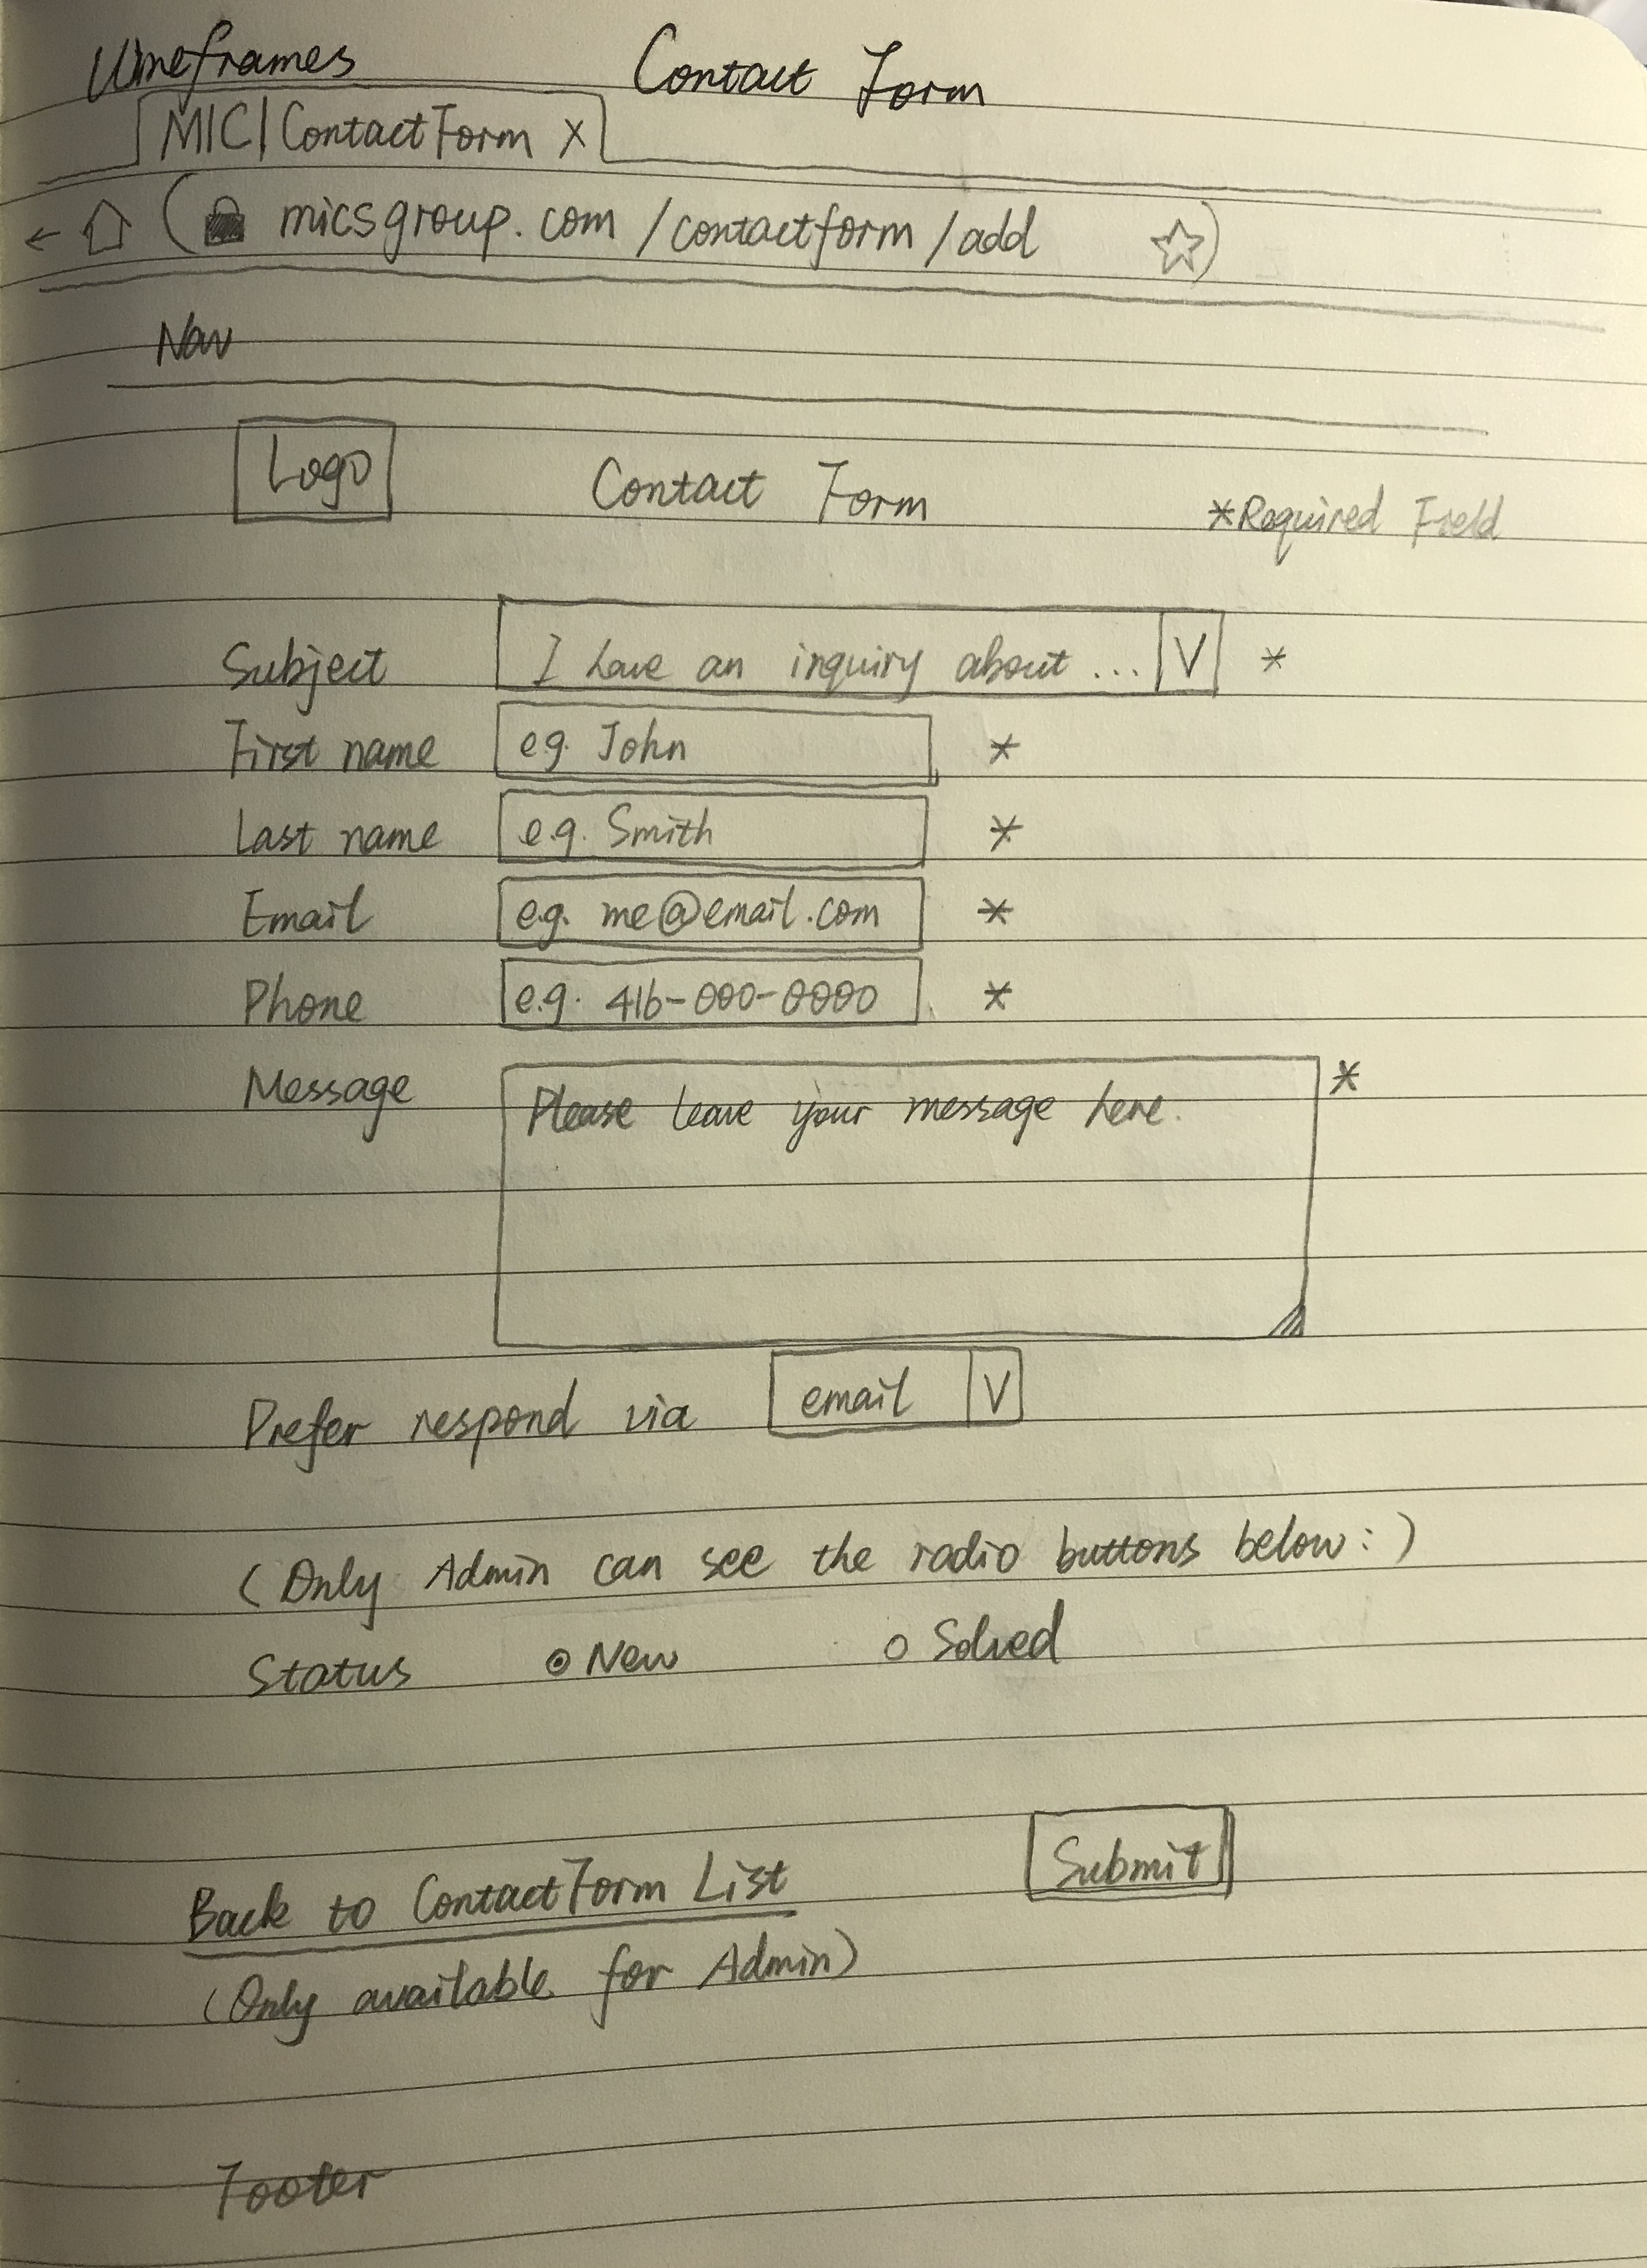 Wireframes Contact Form
MIC | ContactForm X
micsgroup.com/contactform/add
Nav
Logo Contact Form *Required Field
Subject I have an inquiry about ... V *
First name eg. John *
Last name e.g. Smith *
Email e.g. me@email.com *
Phone e.g. 416-000-0000 *
Message Please leave your message here. *
Prefer respond via email V
(Only Admin can see the radio buttons below:)
Status New Solved
Back to ContactForm List Submit
(Only available for Admin)
Footer